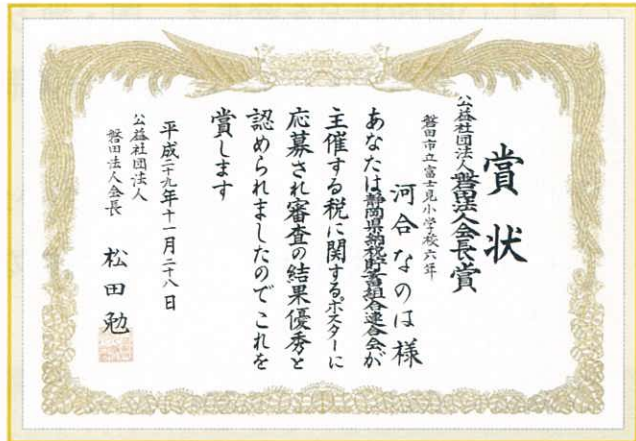 賞状
公益社団法人磐田法人会長賞
磐田市立富士見小学校六年
河合なのは様
あなたは静岡県納税貯蓄組合連合会が
主催する税に関するポスターに
応募され審査の結果優秀と
認められましたのでこれを
賞します
平成二十九年十一月二十八日
公益社団法人
磐田法人会長
松田勉